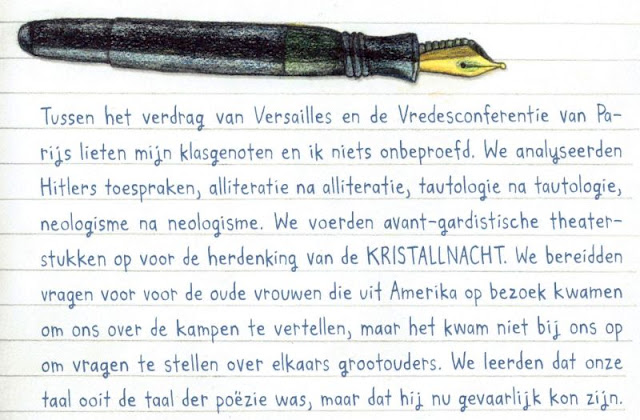 Tussen het verdrag van Versailles en de Vredesconferentie van Pa-
rijs lieten mijn klasgenoten en ik niets onbeproefd. We analyseerden
Hitlers toespraken, alliteratie na alliteratie, tautologie na tautologie,
neologisme na neologisme. We voerden avant-gardistische theater-
stukken op voor de herdenking van de KRISTALLNACHT. We bereidden
vragen voor voor de oude vrouwen die uit Amerika op bezoek kwamen
om ons over de kampen te vertellen, maar het kwam niet bij ons op
om vragen te stellen over elkaars grootouders. We leerden dat onze
taal ooit de taal der poëzie was, maar dat hij nu gevaarlijk kon zijn.